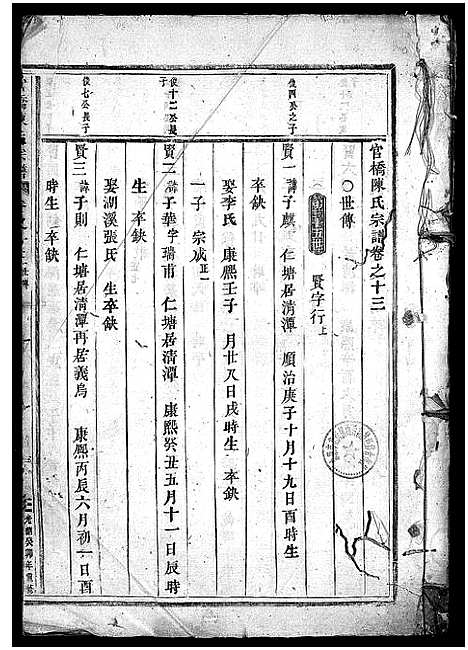 官橋陳氏宗譜卷之十三
〇世傳
賢字行上
俊四公之子
賢一 諱子麒 仁塘居清潭 順治庚子十月十九日酉時生
卒缺
娶李氏 康熙壬子 月廿八日戌時生 卒缺
一子 宗成正一
俊十二公長子
賢二 諱子華字瑞甫 仁塘居清潭 康熙癸丑五月十一日辰時
生 卒缺
娶湖溪張氏 生卒缺
俊七公長子
賢三 諱子則 仁塘居清潭再居義烏 康熙丙辰六月初一日酉
時生卒缺